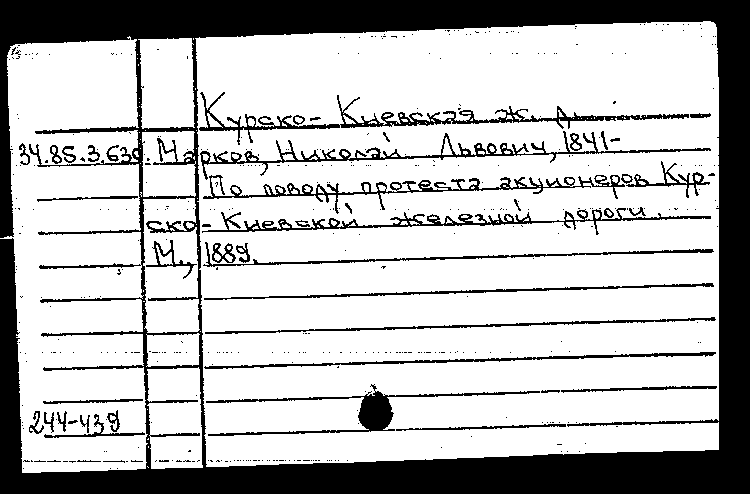 Курско-Киевская ж. д.
34.85.3.630. Марков, Николай Львович, 1841-
По поводу протеста акционеров Кур-
ско-Киевской железной дороги.
М., 1889.
244-439